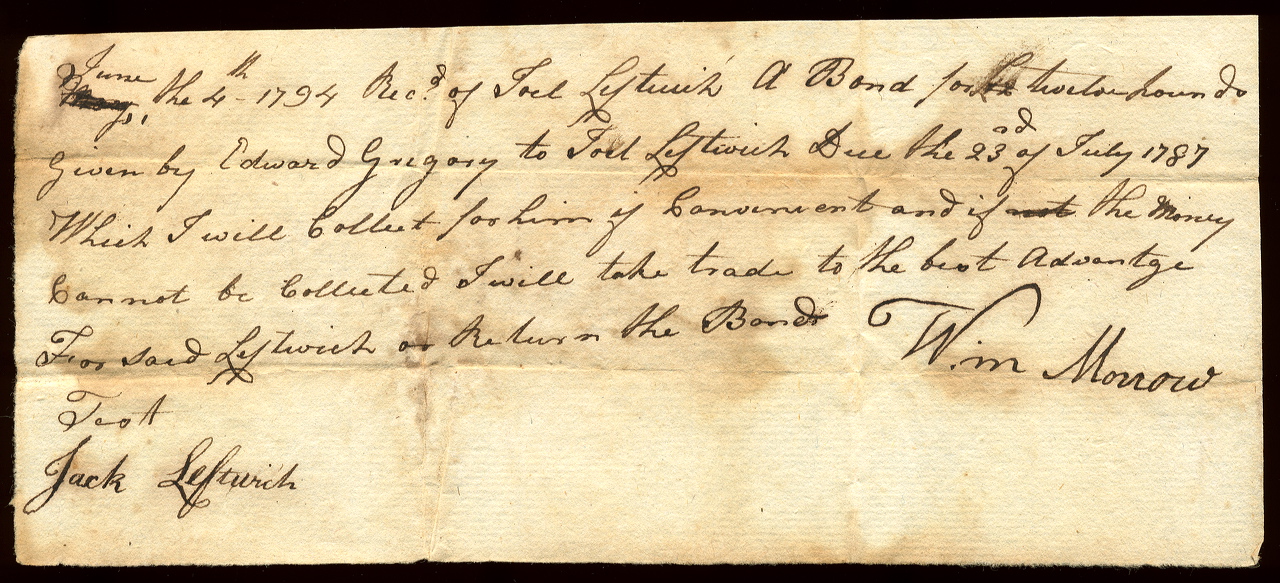 June the 4th 1794 Recd. of Joel Leftwich A Bond for twelve pounds
Given by Edward Gregory to Joel Leftwich Due the 23rd of July 1787
Which I will Collect for him if Convenient and if not the Money
Cannot be Collected I will take trade to the best Advantge
For said Leftwich or Return the Bond
Wm Morrow
Test
Jack Leftwich